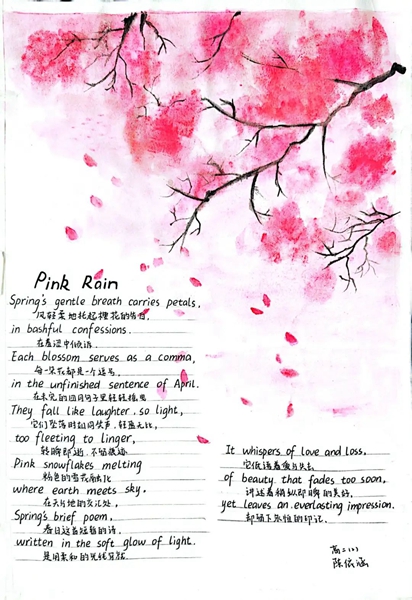 Pink Rain
Spring's gentle breath carries petals,
in bashful confessions.
在羞涩中倾诉
Each blossom serves as a comma,
每一朵花都是一个逗号
in the unfinished sentence of April.
They fall like laughter, so light,
它们坠落时如同笑声,轻盈无比,
too fleeting to linger,
转瞬即逝,不留痕迹
Pink snowflakes melting
粉色的雪花融化
where earth meets sky,
在天与地的交汇处,
Spring's brief poem,
春日这首短暂的诗,
written in the soft glow of light.
是用柔和的光线写就
It whispers of love and loss,
它低语着爱与失去
of beauty that fades too soon,
讲述着稍纵即瞬的美好,
yet leaves an everlasting impression.
却留下永恒的印记.
高二(2)
陈依涵